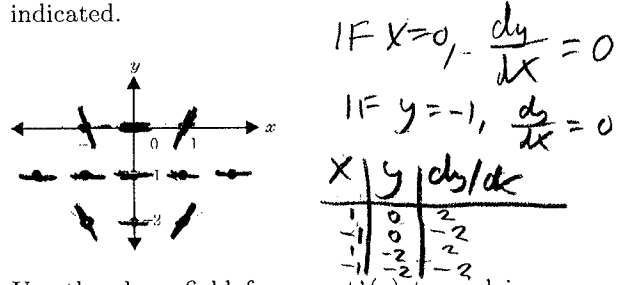 indicated.
IF x=0, dy/dx = 0
IF y=-1, dy/dx = 0
y
x
0 1
-1
-2
x | y | dy/dx
1 0 2
-1 0 -2
1 -2 2
-1 -2 -2